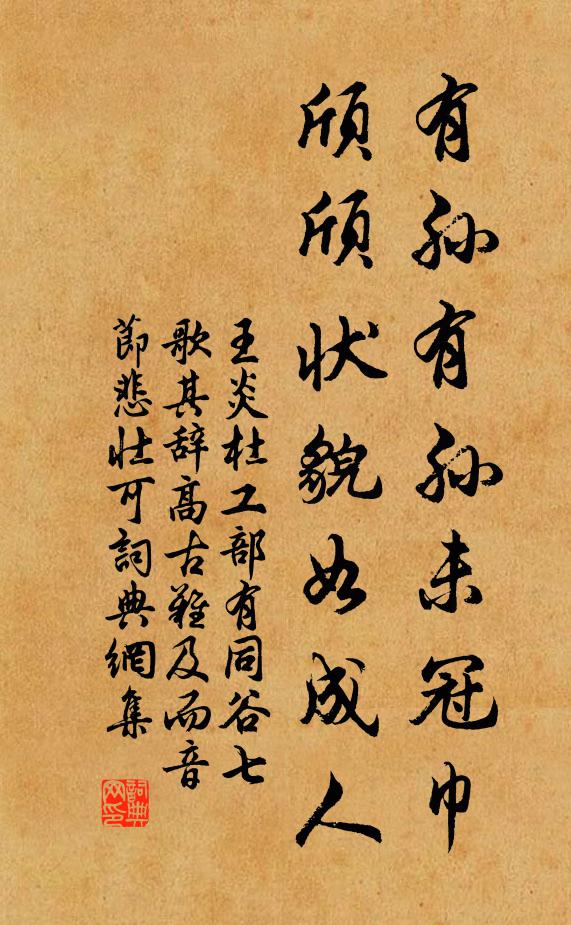 有孙有孙未冠巾
颀颀状貌如成人
王炎杜工部有同谷七
歌其辞高古难及而音
节悲壮可詞典網集
詞典網印